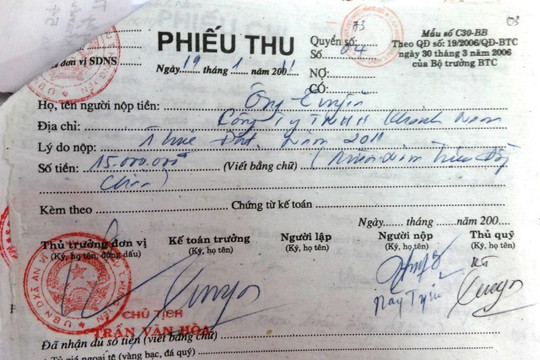 PHIẾU THU
Quyển số: 73
Số 04
Mẫu số C30-BB
Theo QĐ số: 19/2006/QĐ-BTC
ngày 30 tháng 3 năm 2006
của Bộ trưởng BTC
đơn vị SDNS
Ngày 19 tháng 1 năm
NỢ:
CÓ:
Họ, tên người nộp tiền: Ông
Địa chỉ: Công ty TNHH Khanh Nam
Lý do nộp: Thuê Đất Năm 2011
Số tiền: 15.000.000đ (Viết bằng chữ) (Mười Năm Triệu Đồng
Chẵn)
Kèm theo Chứng từ kế toán
Ngày tháng năm 200
Thủ trưởng đơn vị Kế toán trưởng Người lập Người nộp Thủ quỹ
(Ký, họ tên, đóng dấu) (Ký, họ tên) (Ký, họ tên) (Ký, họ tên) (Ký, họ tên)
CHỦ TỊCH
TRẦN VĂN HÒA
Đã nhận đủ số tiền (viết bằng chữ)
Tỷ giá ngoại tệ (vàng bạc, đá quý)